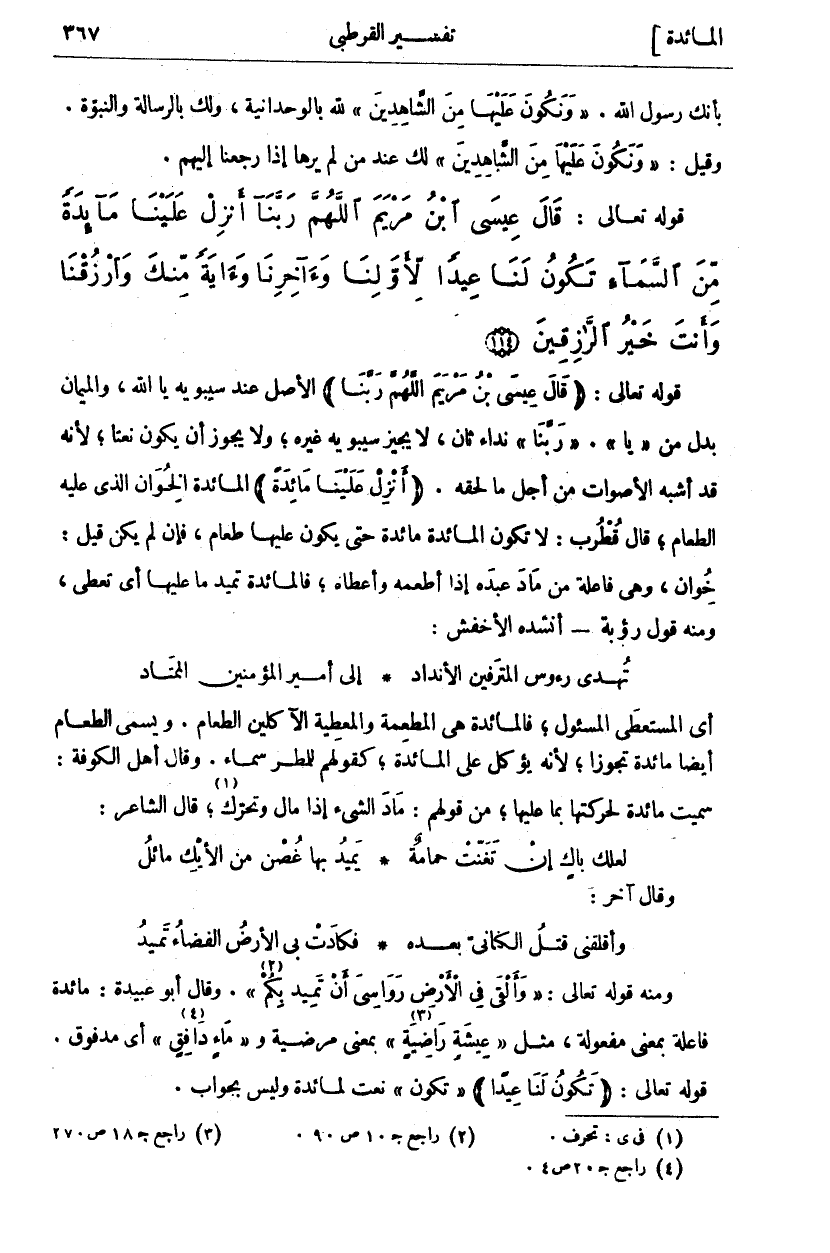 المـائدة ] تفســير القرطبى ٣٦٧
بأنك رسول الله . « وَنَكُونَ عَلَيْهَا مِنَ الشَّاهِدِينَ » لله بالوحدانية ، ولك بالرسالة والنبوّة .
وقيل : « وَنَكُونَ عَلَيْهَا مِنَ الشَّاهِدِينَ » لك عند من لم يرها إذا رجعنا إليهم .
قوله تعـالى : قَالَ عِيسَى ٱبْنُ مَرْيَمَ ٱللَّهُمَّ رَبَّنَآ أَنزِلْ عَلَيْنَـا مَآيِدَةً
مِّنَ ٱلسَّمَآءِ تَكُونُ لَنَـا عِيدًا لِّأَوَّلِنَـا وَءَاخِرِنَا وَءَايَةً مِّنكَ وَٱرْزُقْنَا
وَأَنتَ خَيْرُ ٱلرَّٰزِقِينَ ﴿١١٤﴾
قوله تعالى : ﴿ قَالَ عِيسَى بْنُ مَرْيَمَ اللَّهُمَّ رَبَّنَـا ﴾ الأصل عند سيبويه يا الله ، والميمان
بدل من « يا » . « رَبَّنَا » نداء ثان ، لا يجيز سيبويه غيره ؛ ولا يجوز أن يكون نعتا ؛ لأنه
قد أشبه الأصوات من أجل ما لحقه . ﴿ أَنْزِلْ عَلَيْنَـا مَائِدَةً ﴾ المـائدة الخِوَان الذى عليه
الطعام ؛ قال قُطْرُب : لا تكون المـائدة مائدة حتى يكون عليهـا طعام ، فإن لم يكن قيل :
خُوان ، وهى فاعلة من مَادَ عبدَه إذا أطعمه وأعطاه ؛ فالمـائدة تميد ما عليهـا أى تعطى ،
ومنه قول رؤبة — أنشده الأخفش :
تُهـدى رءوس المترَفين الأنداد * إلى أمـير المؤمنين الممتَاد
أى المستعطَى المسئول ؛ فالمـائدة هى المطعمة والمعطِية الآكلين الطعام . ويسمى الطعـام
أيضا مائدة تجوزا ؛ لأنه يؤكل على المـائدة ؛ كقولهم للطـر سمـاء . وقال أهل الكوفة :
سميت مائدة لحركتها بما عليها ؛ من قولهم : مَادَ الشىء إذا مال وتحرّك (١) ؛ قال الشاعر :
لعلك باكٍ إنْ تَغَنّتْ حمامةٌ * يَمِيدُ بها غُصْن من الأَيْكِ مائلُ
وقال آخر :
وأقلقنى قتـلُ الكنانىّ بعـده * فكادَتْ بى الأرضُ الفضاءُ تَمِيدُ
ومنه قوله تعالى : « وَأَلْقَى فِى الْأَرْضِ رَوَاسِىَ أَنْ تَمِيدَ بِكُمْ (٢) » . وقال أبو عبيدة : مائدة
فاعلة بمعنى مفعولة ، مثـل « عِيشَةٍ رَاضِيَةٍ (٣) » بمعنى مرضـية و « مَاءٍ دَافِقٍ (٤) » أى مدفوق .
قوله تعالى : ﴿ تَكُونُ لَنَا عِيدًا ﴾ « تكون » نعت لمـائدة وليس بجواب .
(١) فى ى : تحرف . (٢) راجع جـ ١٠ ص ٩٠ . (٣) راجع جـ ١٨ ص ٢٧٠
(٤) راجع جـ ٢٠ ص ٤ .